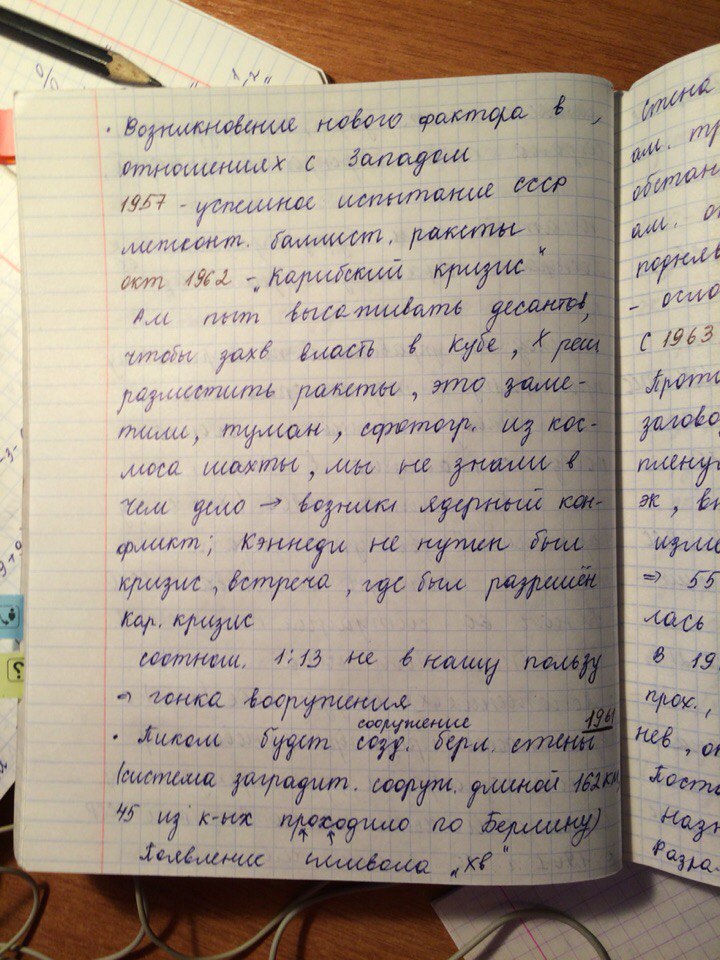 · Возникновение нового фактора в
отношениях с Западом
1957 - успешное испытание СССР
межконт. баллист. ракеты
окт 1962 - „Карибский кризис"
Ам пыт высаживать десантов,
чтобы захв власть в Кубе, Х реш
разместить ракеты, это заме-
тили, туман, сфотогр. из кос-
моса шахты, мы не знали в
чем дело → возник ядерный кон-
фликт; Кэннеди не нужен был
кризис, встреча, где был разрешён
кар. кризис
соотнош. 1:13 не в нашу пользу
→ гонка вооружения
сооружение 1961
· Пиком будет созд. берл. стены
(система заградит. сооруж. длиной 162 км,
45 из к-ых проходило по Берлину)
Появление символа „ХВ"
Стена
ам. тр
обстан
ам. о
подняв
- осно
С 1963
Прот
загово
плену
эк, вн
изме
⇒ 55
лась
В 19
прох.,
нев, о
Поста
назн
Разра